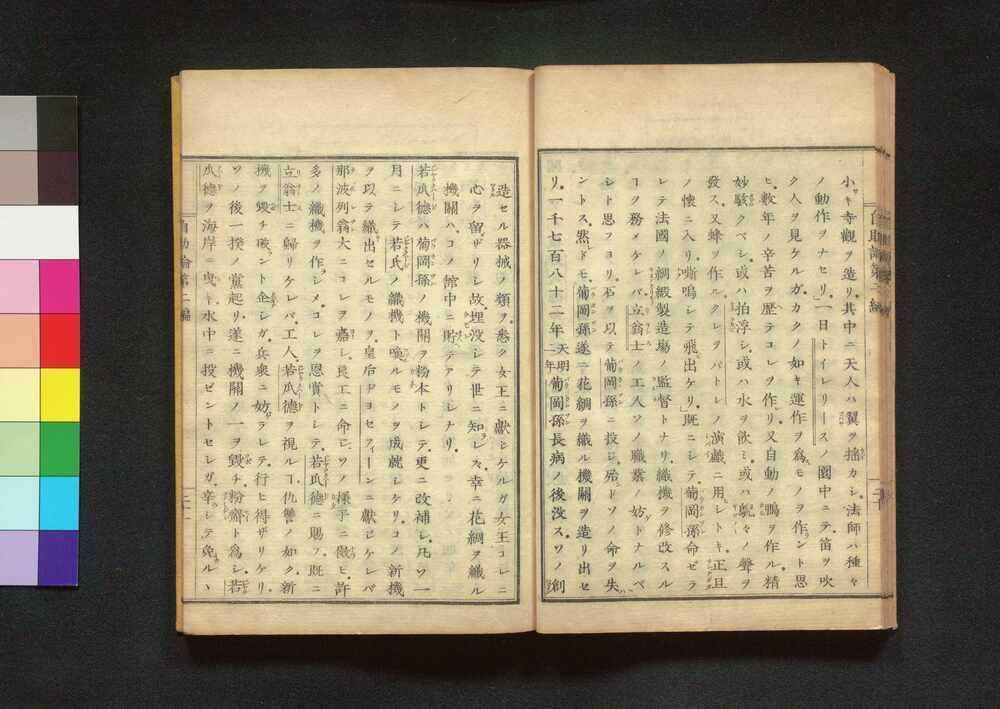 小キ寺觀ヲ造リ、其中ニ天人ハ翼ヲ搖カシ、法師ハ種々
ノ動作ヲナセリ、一日トイレリースノ園中ニテ、笛ヲ吹
ク人ヲ見ケルガ、カクノ如キ運作ヲ爲スモノヲ作ント思
ヒ、數年ノ辛苦ヲ歴テコレヲ作リ、又自動ノ鴨ヲ作ル、精
妙駭クベシ、或ハ拍浮シ、或ハ水ヲ飮ミ、或ハ鳧々ノ聲ヲ
發ス、又蜂ヲ作ル、クレヲパトレノ演戲ニ用レトキ、正旦
ノ懷ニ入リ、嘶鳴シテ飛出ケリ、既ニシテ葡岡孫命ゼラ
レテ法國ノ綢緞製造場ノ監督トナリ、織機ヲ修改スル
コヲ務メケレバ、立翁士ノ工人ソノ職業ノ妨トナルベ
シト思フヨリ、石ヲ以テ葡岡孫ニ投シ、殆ドソノ命ヲ失
ントス、然レドモ、葡岡孫遂ニ花綢ヲ織ル機關ヲ造リ出セ
リ、一千七百八十二年天明二年葡岡孫長病ノ後沒ス、ソノ創
造セル器械ノ類ヲ、悉ク女王ニ獻ジケルガ女王コレニ
心ヲ留ザリシ故、埋沒シテ世ニ知レズ、幸ニ花綢ヲ織ル
機關ハ、コノ館中ニ貯テアリシナリ、
若瓜德ハ葡岡孫ノ機關ヲ粉本トシテ、更ニ改補シ、凡ソ一
月ニシテ若氏ノ織機ト喚ルモノヲ成就シケリ、コノ新機
ヲ以テ織出セルモノヲ、皇后ドヨセフィーンニ獻ジケレバ
那波列翁大ニコレヲ嘉シ、良工ニ命ジ、ソノ樣子ニ倣ヒ、許
多ノ織機ヲ作ラシメ、コレヲ恩賞トシテ、若瓜德ニ賜フ、既ニ
立翁士ニ歸リケレバ、工人、若瓜德ヲ視ルコ仇讐ノ如ク、新
機ヲ毀チ破ラント企シガ、兵衆ニ妨ラレテ、行ヒ得ザリケリ、
ソノ後一揆ノ黨起リ、遂ニ機關ノ一ヲ毀チ、粉齏ト爲シ、若
瓜德ヲ海岸ニ曳キ、水中ニ投ゼントセシガ、辛シテ免ルヽ
自助論第二編